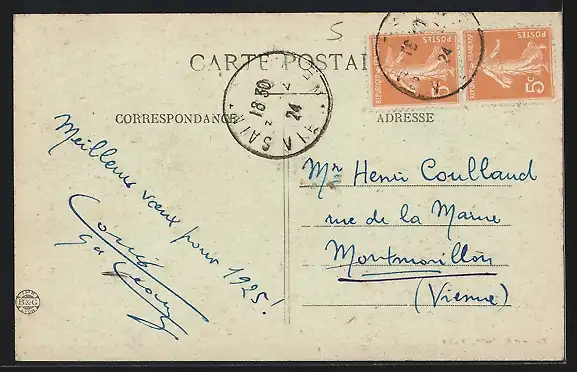 5
CARTE POSTALE
18 30
24
18 30
24
POSTES
5c
REPUBLIQUE FRANÇAISE
POSTES
5c
CORRESPONDANCE
ADRESSE
Meilleurs vœux pour 1925!
Mr Henri Coulland
rue de la Maine
Montmorillon
(Vienne)
B&G